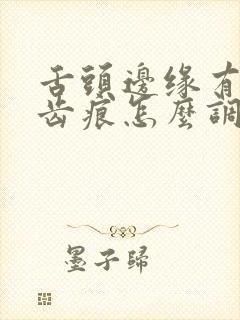 舌頭邊緣有
齒痕怎麼調
墨子歸